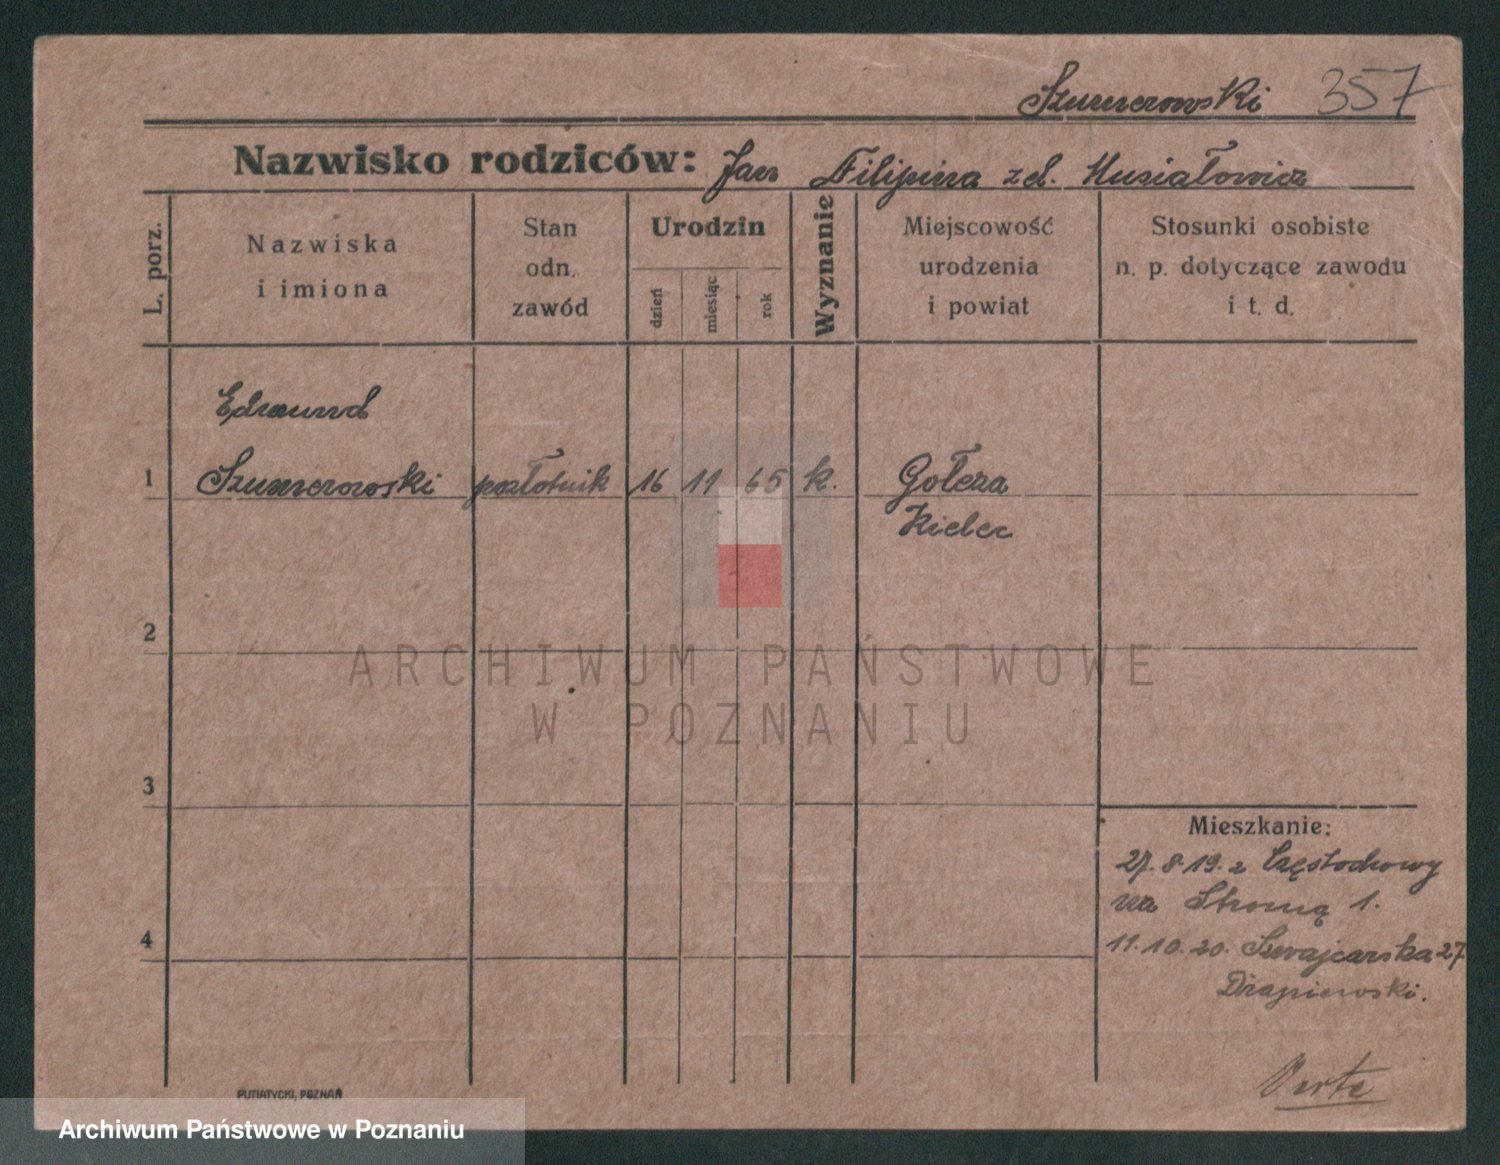 Szumerowski 357
Nazwisko rodziców: Jan Filipina z d. Musiałowicz
L. porz.
Nazwiska
i imiona
Stan
odn.
zawód
Urodzin
dzień
miesiąc
rok
Wyznanie
Miejscowość
urodzenia
i powiat
Stosunki osobiste
n. p. dotyczące zawodu
i t. d.
Edmund
1 Szumerowski pozłotnik 16 11 65 k. Gołcza
Kielec
2
ARCHIWUM PAŃSTWOWE
W POZNANIU
3
Mieszkanie:
27. 8. 19. z Częstochowy
na Stromą 1.
4
11. 10. 20. Szwajcarska 27
Drapiewski.
Verte
PUTIATYCKI, POZNAŃ
Archiwum Państwowe w Poznaniu